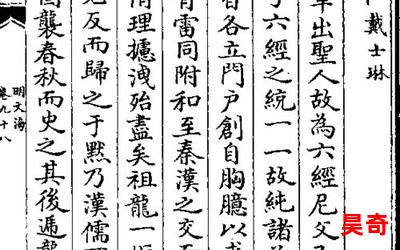 戴士琳
出聖人故為六經尼父
于六經之統一一故純諸
各立門户創自胸臆以
有雷同附和至秦漢之交
情理攄洩殆盡矣祖龍一
反而歸之于默乃漢儒
襲春秋而史之其後遞襲
明文海
卷九十八
昊奇